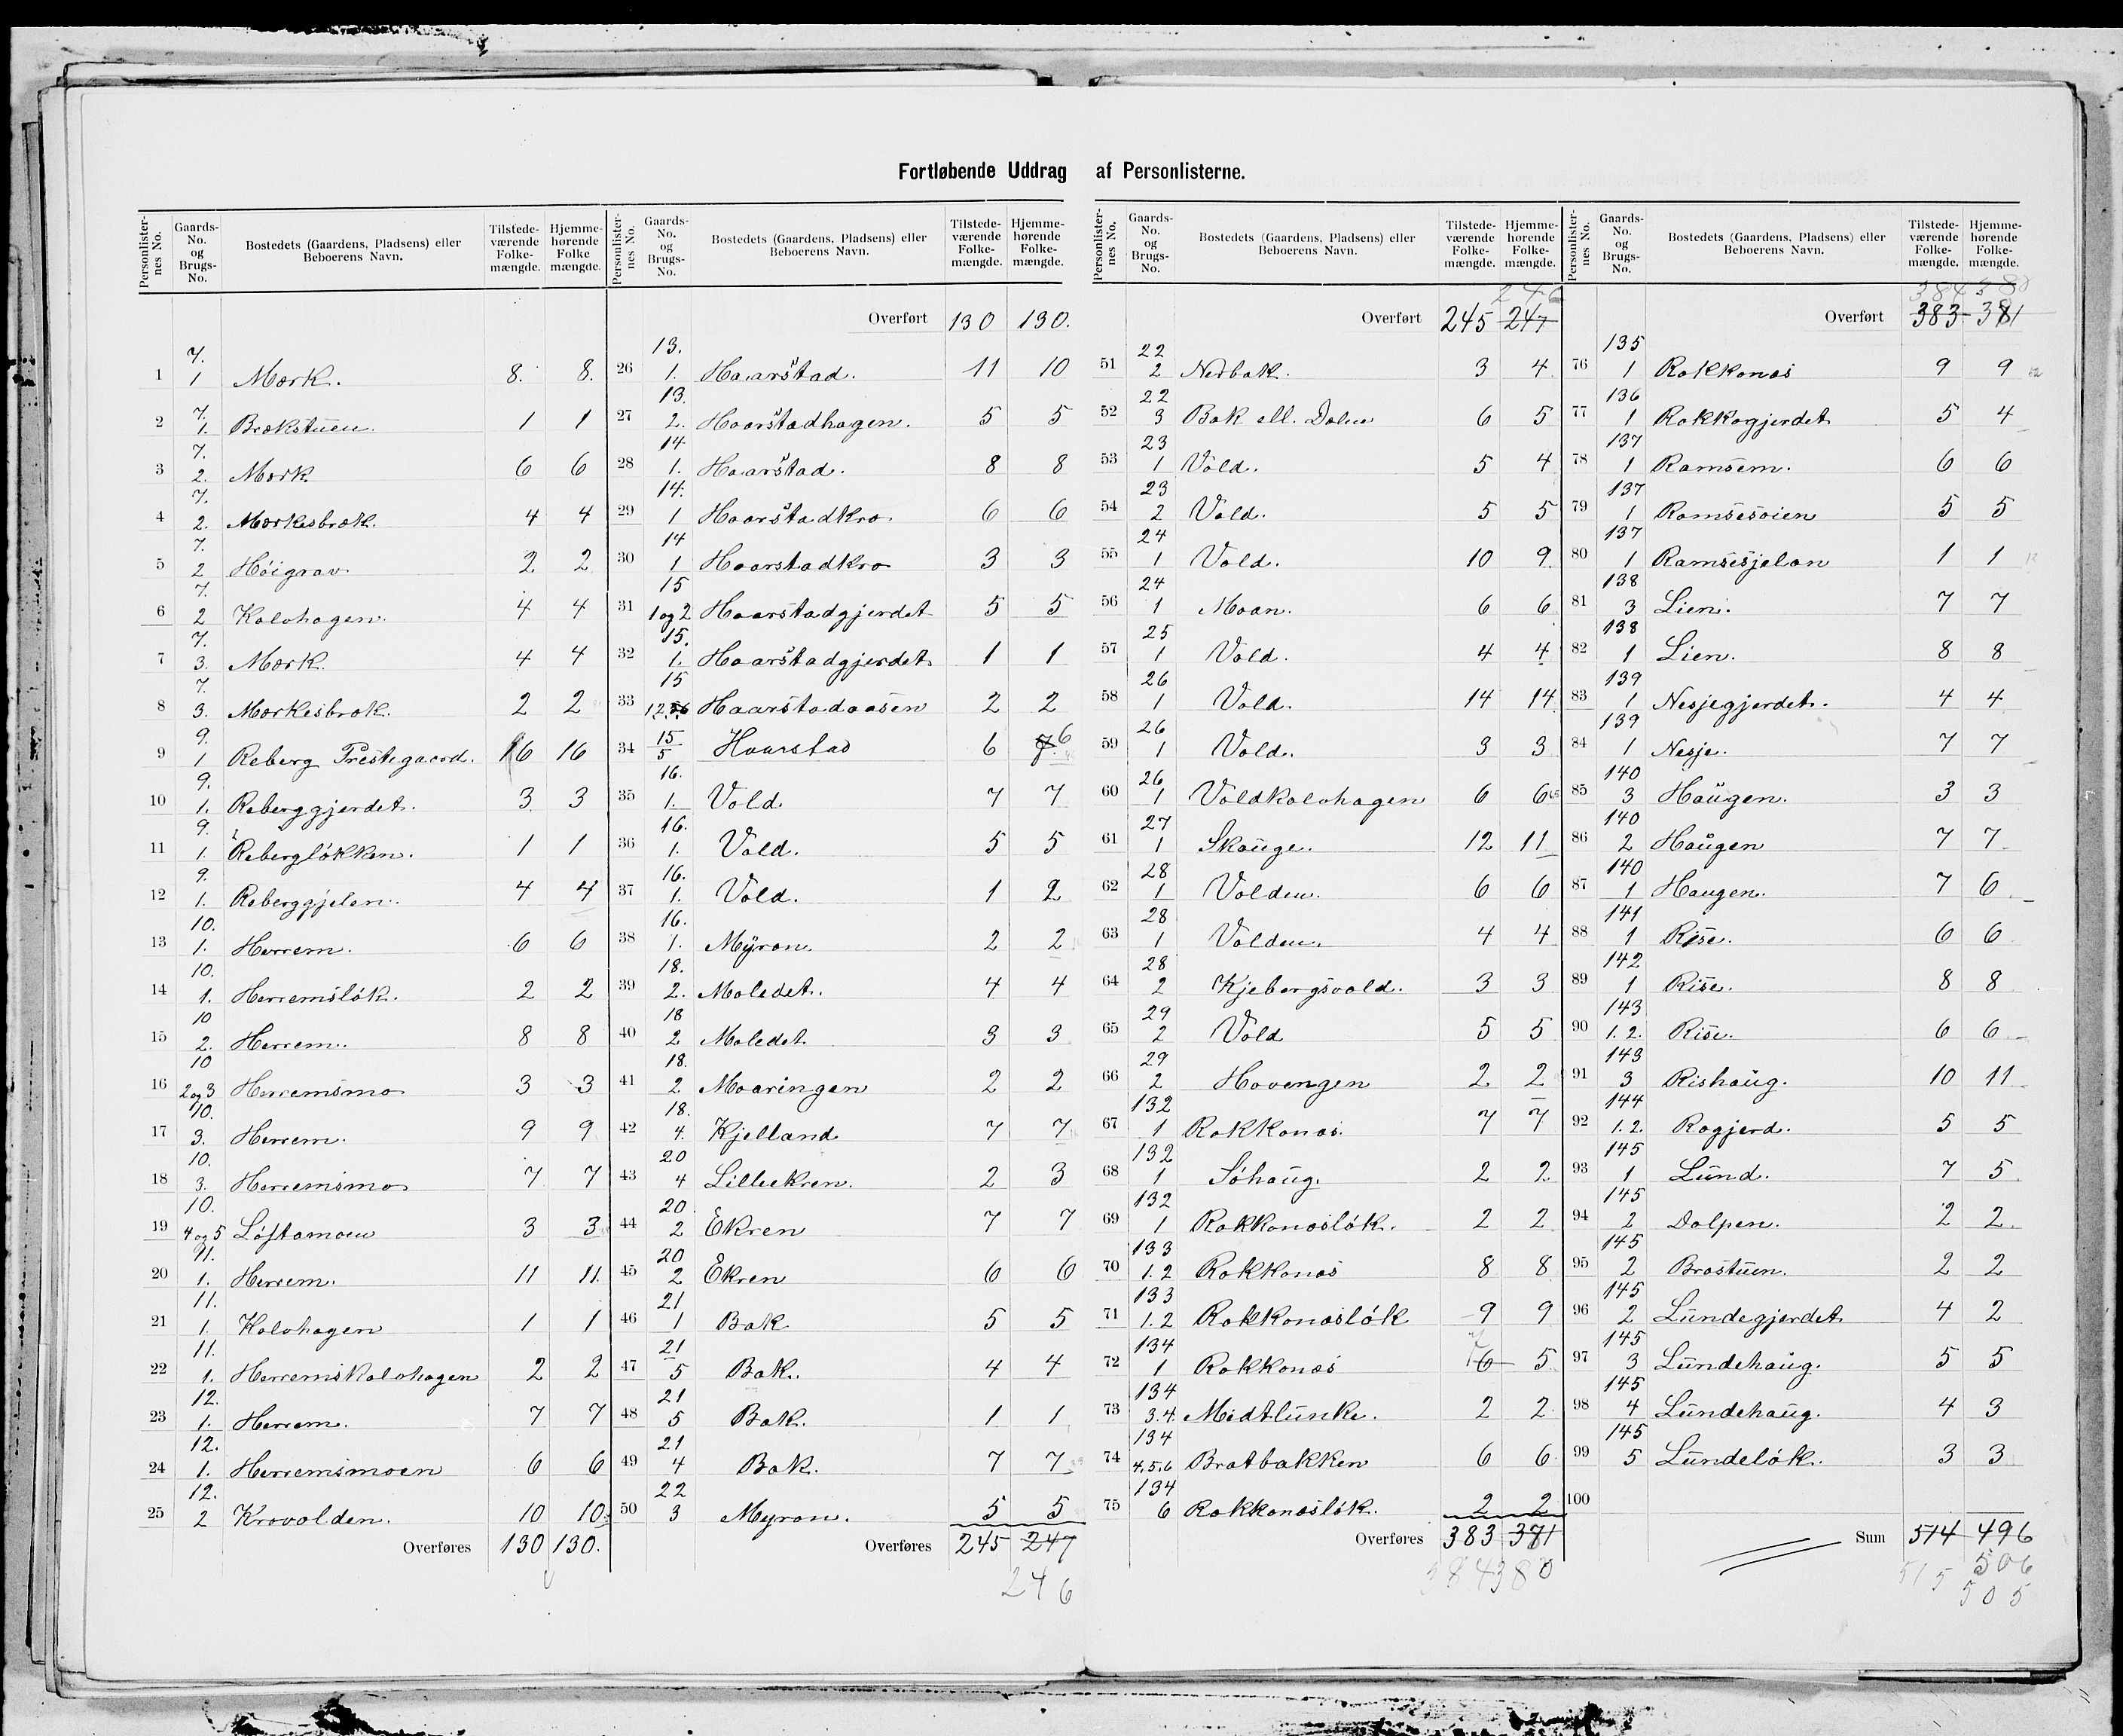 Fortløbende Uddrag af Personlisterne.
Personlisternes No. Gaards-No. og Brugs-No. Bostedets (Gaardens, Pladsens) eller Beboerens Navn. Tilstedeværende Folkemængde. Hjemmehørende Folkemængde.
1 7. 1 Mærk. 8. 8.
2 7. 1. Brækstuen. 1 1
3 7. 2. Mærk 6 6
4 7. 2. Mærkesbræk. 4 4
5 7. 2 Höigrav 2 2
6 7. 2 Kalvhagen. 4 4
7 7. 3. Mærk. 4 4
8 7. 3. Mærkesbræk. 2 2
9 9. 1 Reberg Prestegaard. 16 16
10 9. 1. Reberggjerdet. 3 3
11 9. 1. Reberglökken. 1 1
12 9. 1. Reberggjelen. 4 4
13 10. 1. Herrem. 6 6
14 10. 1. Herremslök. 2 2
15 10 2. Herrem. 8 8
16 10 2 og 3 Herremsmo 3 3
17 10. 3. Herrem. 9 9
18 10. 3. Herremsmo 7 7
19 10. 4 og 5 Løftamoen 3 3
20 11. 1. Herrem. 11 11.
21 11. 1. Kalvhagen 1 1
22 11. 1. Herremskalvhagen 2 2
23 12. 1. Herrem. 7 7
24 12. 1. Herremsmoen 6 6
25 12. 2 Kravolden. 10 10
Overføres 130 130.
Personlisternes No. Gaards-No. og Brugs-No. Bostedets (Gaardens, Pladsens) eller Beboerens Navn. Tilstedeværende Folkemængde. Hjemmehørende Folkemængde.
Overført 130 130.
26 13. 1. Haarstad. 11 10
27 13. 2. Haarstadhagen. 5 5
28 14 1. Haarstad. 8 8
29 14. 1 Haarstadkra 6 6
30 14 1 Haarstadkra 3 3
31 15 1 og 2 Haarstadgjerdet 5 5
32 15. 1. Haarstadgjerdet 1 1
33 15 Haarstadaasen 2 2
34 15 5 Haarstad 6 7 6
35 16. 1. Vold. 7 7
36 16. 1. Vold. 5 5
37 16. 1. Vold. 1 2
38 16. 1. Myran. 2 2
39 18. 2. Moledet. 4 4
40 18 2 Moledet. 3 3
41 18. 2 Moaringen 2 2
42 18. 4. Kjelland 7 7
43 20 4 Lilleekren. 2 3
44 20. 2 Ekren 7 7
45 20 2 Ekren 6 6
46 21 1 Bak 5 5
47 21 5 Bak. 4 4
48 21 5 Bak. 1 1
49 21 4 Bak. 7 7
50 22 3 Myran. 5 5
Overføres 245 247
246
Personlisternes No. Gaards-No. og Brugs-No. Bostedets (Gaardens, Pladsens) eller Beboerens Navn. Tilstedeværende Folkemængde. Hjemmehørende Folkemængde.
246
Overført 245 247
51 22 2 Nerbak. 3 4
52 22 3 Bak ell. Dalen 6 5
53 23 1 Vold. 5 4
54 23 2 Vold. 5 5
55 24 1 Vold. 10 9
56 24 1 Moan. 6 6
57 25 1 Vold. 4 4
58 26 1 Vold. 14 14
59 26 1 Vold. 3 3
60 26 1 Voldkalvhagen 6 6
61 27 1 Skauge. 12 11
62 28 1 Volden. 6 6
63 28 1 Volden. 4 4
64 28 2 Kjebergsvold. 3 3
65 29 2 Vold 5 5
66 29 2 Hovengen 2 2
67 132 1 Rokkonæs. 7 7
68 132 1 Söhaug. 2 2
69 132 1 Rokkonæslök. 2 2
70 133 1. 2 Rokkonæs 8 8
71 133 1. 2 Rokkonæslök 9 9
72 134 1 Rokkonæs 7 6 5
73 134 3.4. Midtlunke. 2 2
74 134 4.5.6 Bratbakken 6 6
75 134 6 Rokkonæslök. 2 2
Overføres 383 371
384 380
Personlisternes No. Gaards-No. og Brugs-No. Bostedets (Gaardens, Pladsens) eller Beboerens Navn. Tilstedeværende Folkemængde. Hjemmehørende Folkemængde.
384 380
Overført 383 371
76 135 1 Rokkonæs 9 9
77 136 1 Rokkogjerdet 5 4
78 137 1 Ramsem. 6 6
79 137 1 Ramsesöien 5 5
80 137 1 Ramsesjelan 1 1
81 138 3 Lien. 7 7
82 138 1 Lien. 8 8
83 139 1 Nesjegjerdet. 4 4
84 139 1 Nesje. 7 7
85 140 3 Haugen. 3 3
86 140 2 Haugen 7 7
87 140 1 Haugen. 7 6
88 141 1 Rise. 6 6
89 142 1 Rise. 8 8
90 143 1. 2. Rise. 6 6
91 143 3 Rishaug. 10 11
92 144 1. 2. Rogjerd. 5 5
93 145 1 Lund. 7 5
94 145 2 Dalpen. 2 2
95 145 2 Brastuen. 2 2
96 145 2 Lundegjerdet 4 2
97 145 3 Lundehaug. 5 5
98 145 4 Lundehaug. 4 3
99 145 5 Lundelök. 3 3
100
Sum 514 496
515 506
505